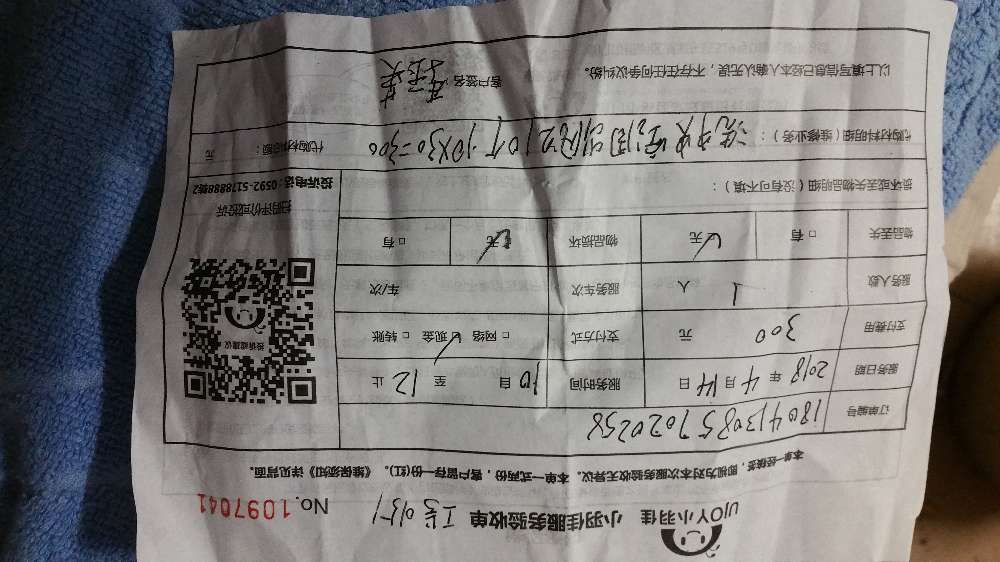 UJOY小羽佳 小羽佳服务验收单 No.1097041
本单一经签署,即视为对本次服务验收无异议。本单一式两份,客户留存一份(红)。《维保须知》详见背面。
订单编号 1804130857020258
服务日期 2018年4月14日 服务时间 10自 至12止
支付费用 300元 支付方式 □网络 ☑现金 □转账
服务人数 1人 服务车次 车/次
物品丢失 □有 ☑无 物品损坏 ☑无 □有
损坏或丢失物品明细(没有可不填):
代购材料明细(维修业务): 10个 10X30=300 代购材料总额: 元
以上填写信息已经本人确认无误,不存在任何争议纠纷。 客户签名:
投诉或建议
扫码评价或投诉
投诉电话:0592-5178888转2